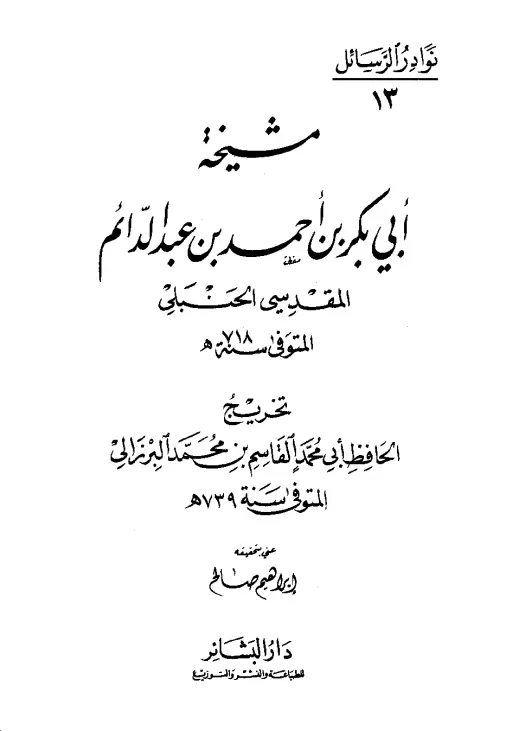 نوادر الرسائل
١٣
مشيخة
أبي بكر بن أحمد بن عبد الدائم
المقدسي الحنبلي
المتوفى سنة ٧١٨ هـ
تخريج
الحافظ أبي محمد القاسم بن محمد البرزالي
المتوفى سنة ٧٣٩ هـ
عني بتحقيقه
إبراهيم صالح
دار البشائر
للطباعة والنشر والتوزيع